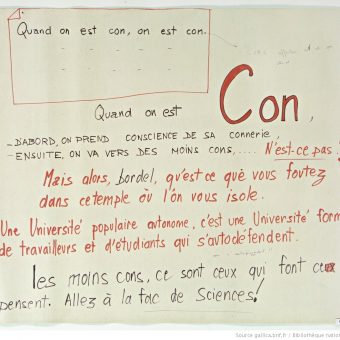 Quand on est con, on est con.
Quand on est Con,
-D'ABORD, ON PREND CONSCIENCE DE SA CONNERIE,
-ENSUITE, ON VA VERS DES MOINS CONS,.... N'est-ce pas?
Mais alors, bordel, qu'est ce que vous foutez
dans ce temple où l'on vous isole.
Une Université populaire autonome, c'est une Université form
de travailleurs et d'étudiants qui s'autodéfendent.
les moins cons, ce sont ceux qui font ceux
pensent. Allez à la fac de Sciences!
Source gallica.bnf.fr / Bibliothèque nation